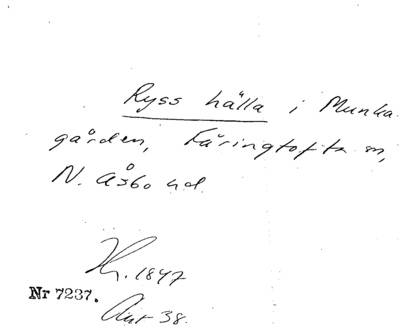 Ryss hälla i Munka
gården, Färingtofta sn,
N. Åsbo hd.
Hr. 1847
Nr 7237.
Ant 38.